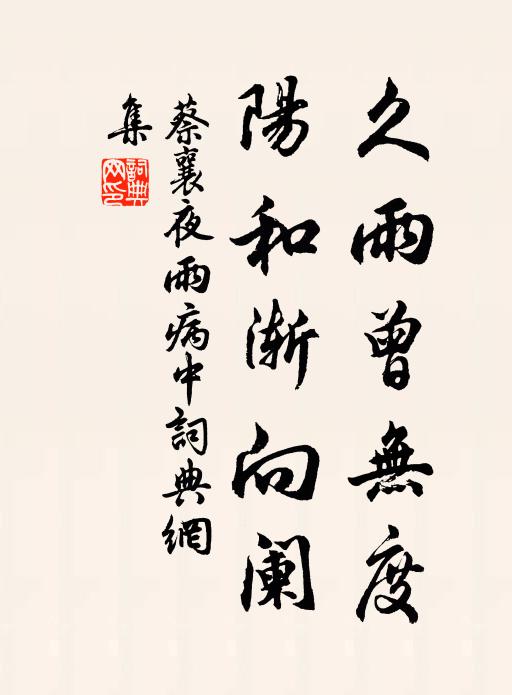 久雨曾無度
陽和漸向阑
蔡襄夜雨病中詞典網
集
詞典
网印